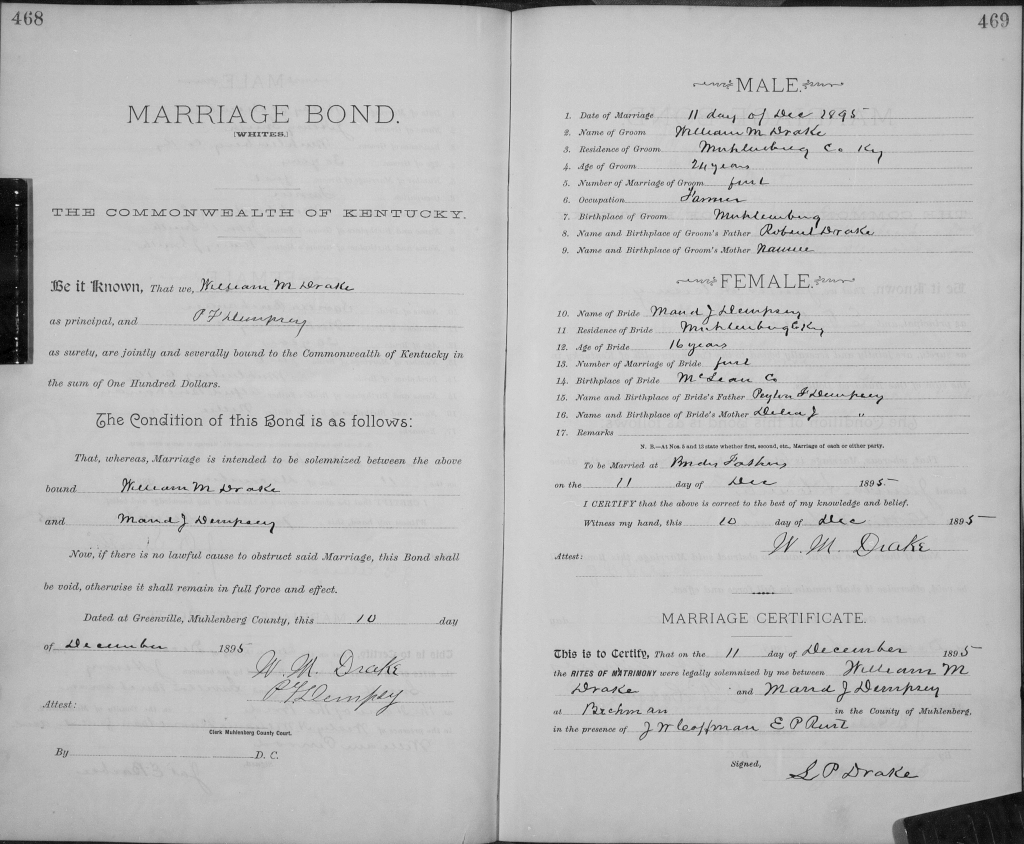 468
MARRIAGE BOND.
[WHITES.]
THE COMMONWEALTH OF KENTUCKY.
Be it Known, That we, William M Drake
as principal, and P F Dempsey
as surety, are jointly and severally bound to the Commonwealth of Kentucky in
the sum of One Hundred Dollars.
The Condition of this Bond is as follows:
That, whereas, Marriage is intended to be solemnized between the above
bound William M Drake
and Maud J Dempsey
Now, if there is no lawful cause to obstruct said Marriage, this Bond shall
be void, otherwise it shall remain in full force and effect.
Dated at Greenville, Muhlenberg County, this 10 day
of December 1895
W. M. Drake
P F Dempsey
Attest:
Clerk Muhlenberg County Court.
By D. C.
469
MALE.
1. Date of Marriage 11 day of Dec 1895
2. Name of Groom William M Drake
3. Residence of Groom Muhlenburg Co Ky
4. Age of Groom 24 years
5. Number of Marriage of Groom first
6. Occupation Farmer
7. Birthplace of Groom Muhlenburg
8. Name and Birthplace of Groom's Father Robert Drake
9. Name and Birthplace of Groom's Mother Nannie
FEMALE.
10. Name of Bride Maud J Dempsey
11 Residence of Bride Muhlenburg Co Ky
12. Age of Bride 16 years
13. Number of Marriage of Bride first
14. Birthplace of Bride McLean Co
15. Name and Birthplace of Bride's Father Peyton F Dempsey
16. Name and Birthplace of Bride's Mother Delia J "
17. Remarks
N. B.—At Nos. 5 and 13 state whether first, second, etc., Marriage of each or either party.
To be Married at Brides Fathers
on the 11 day of Dec 1895
I CERTIFY that the above is correct to the best of my knowledge and belief.
Witness my hand, this 10 day of Dec 1895
W. M. Drake
Attest:
MARRIAGE CERTIFICATE.
This is to Certify, That on the 11 day of December 1895
the RITES OF MATRIMONY were legally solemnized by me between William M
Drake and Maud J Dempsey
at in the County of Muhlenberg,
in the presence of J W Coffman E P
Signed,
L P Drake